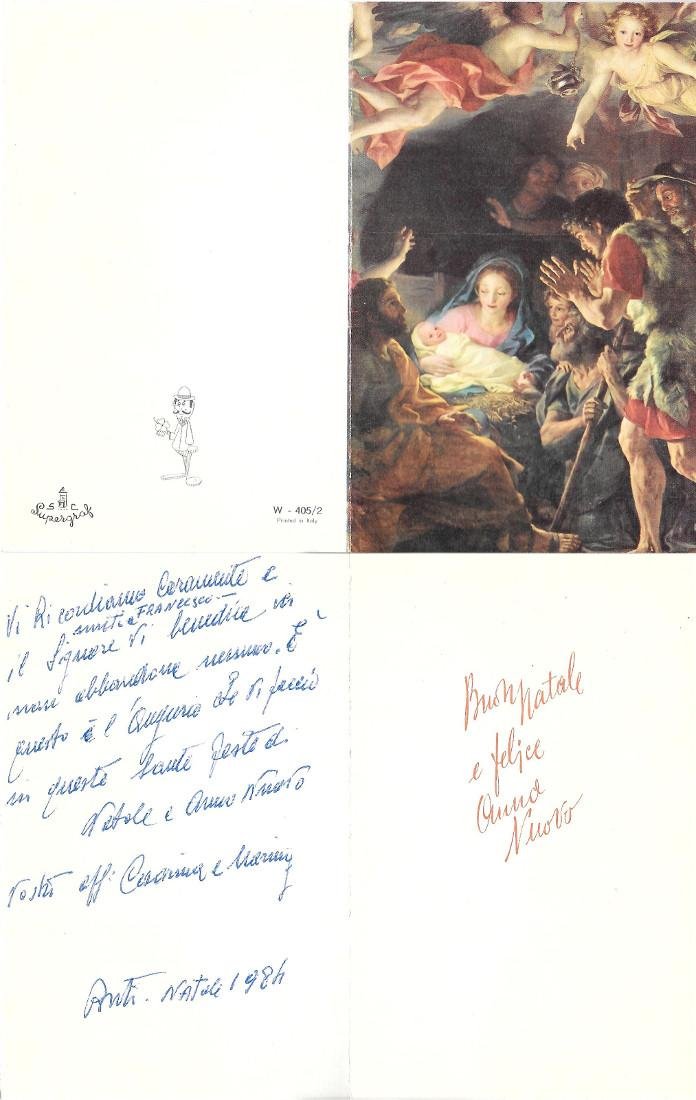 S C
Supergraf
W - 405/2
Printed in Italy
Vi Ricordiamo Caramente e
uniti a FRANCESCO
il Signore Vi benedica
non abbandona nessuno. E
questo è l'Augurio che Vi faccio
in queste Sante Feste di
Natale e Anno Nuovo
Vostri aff: Cesarina e
Natale 1984
Buon Natale
e felice
Anno
Nuovo